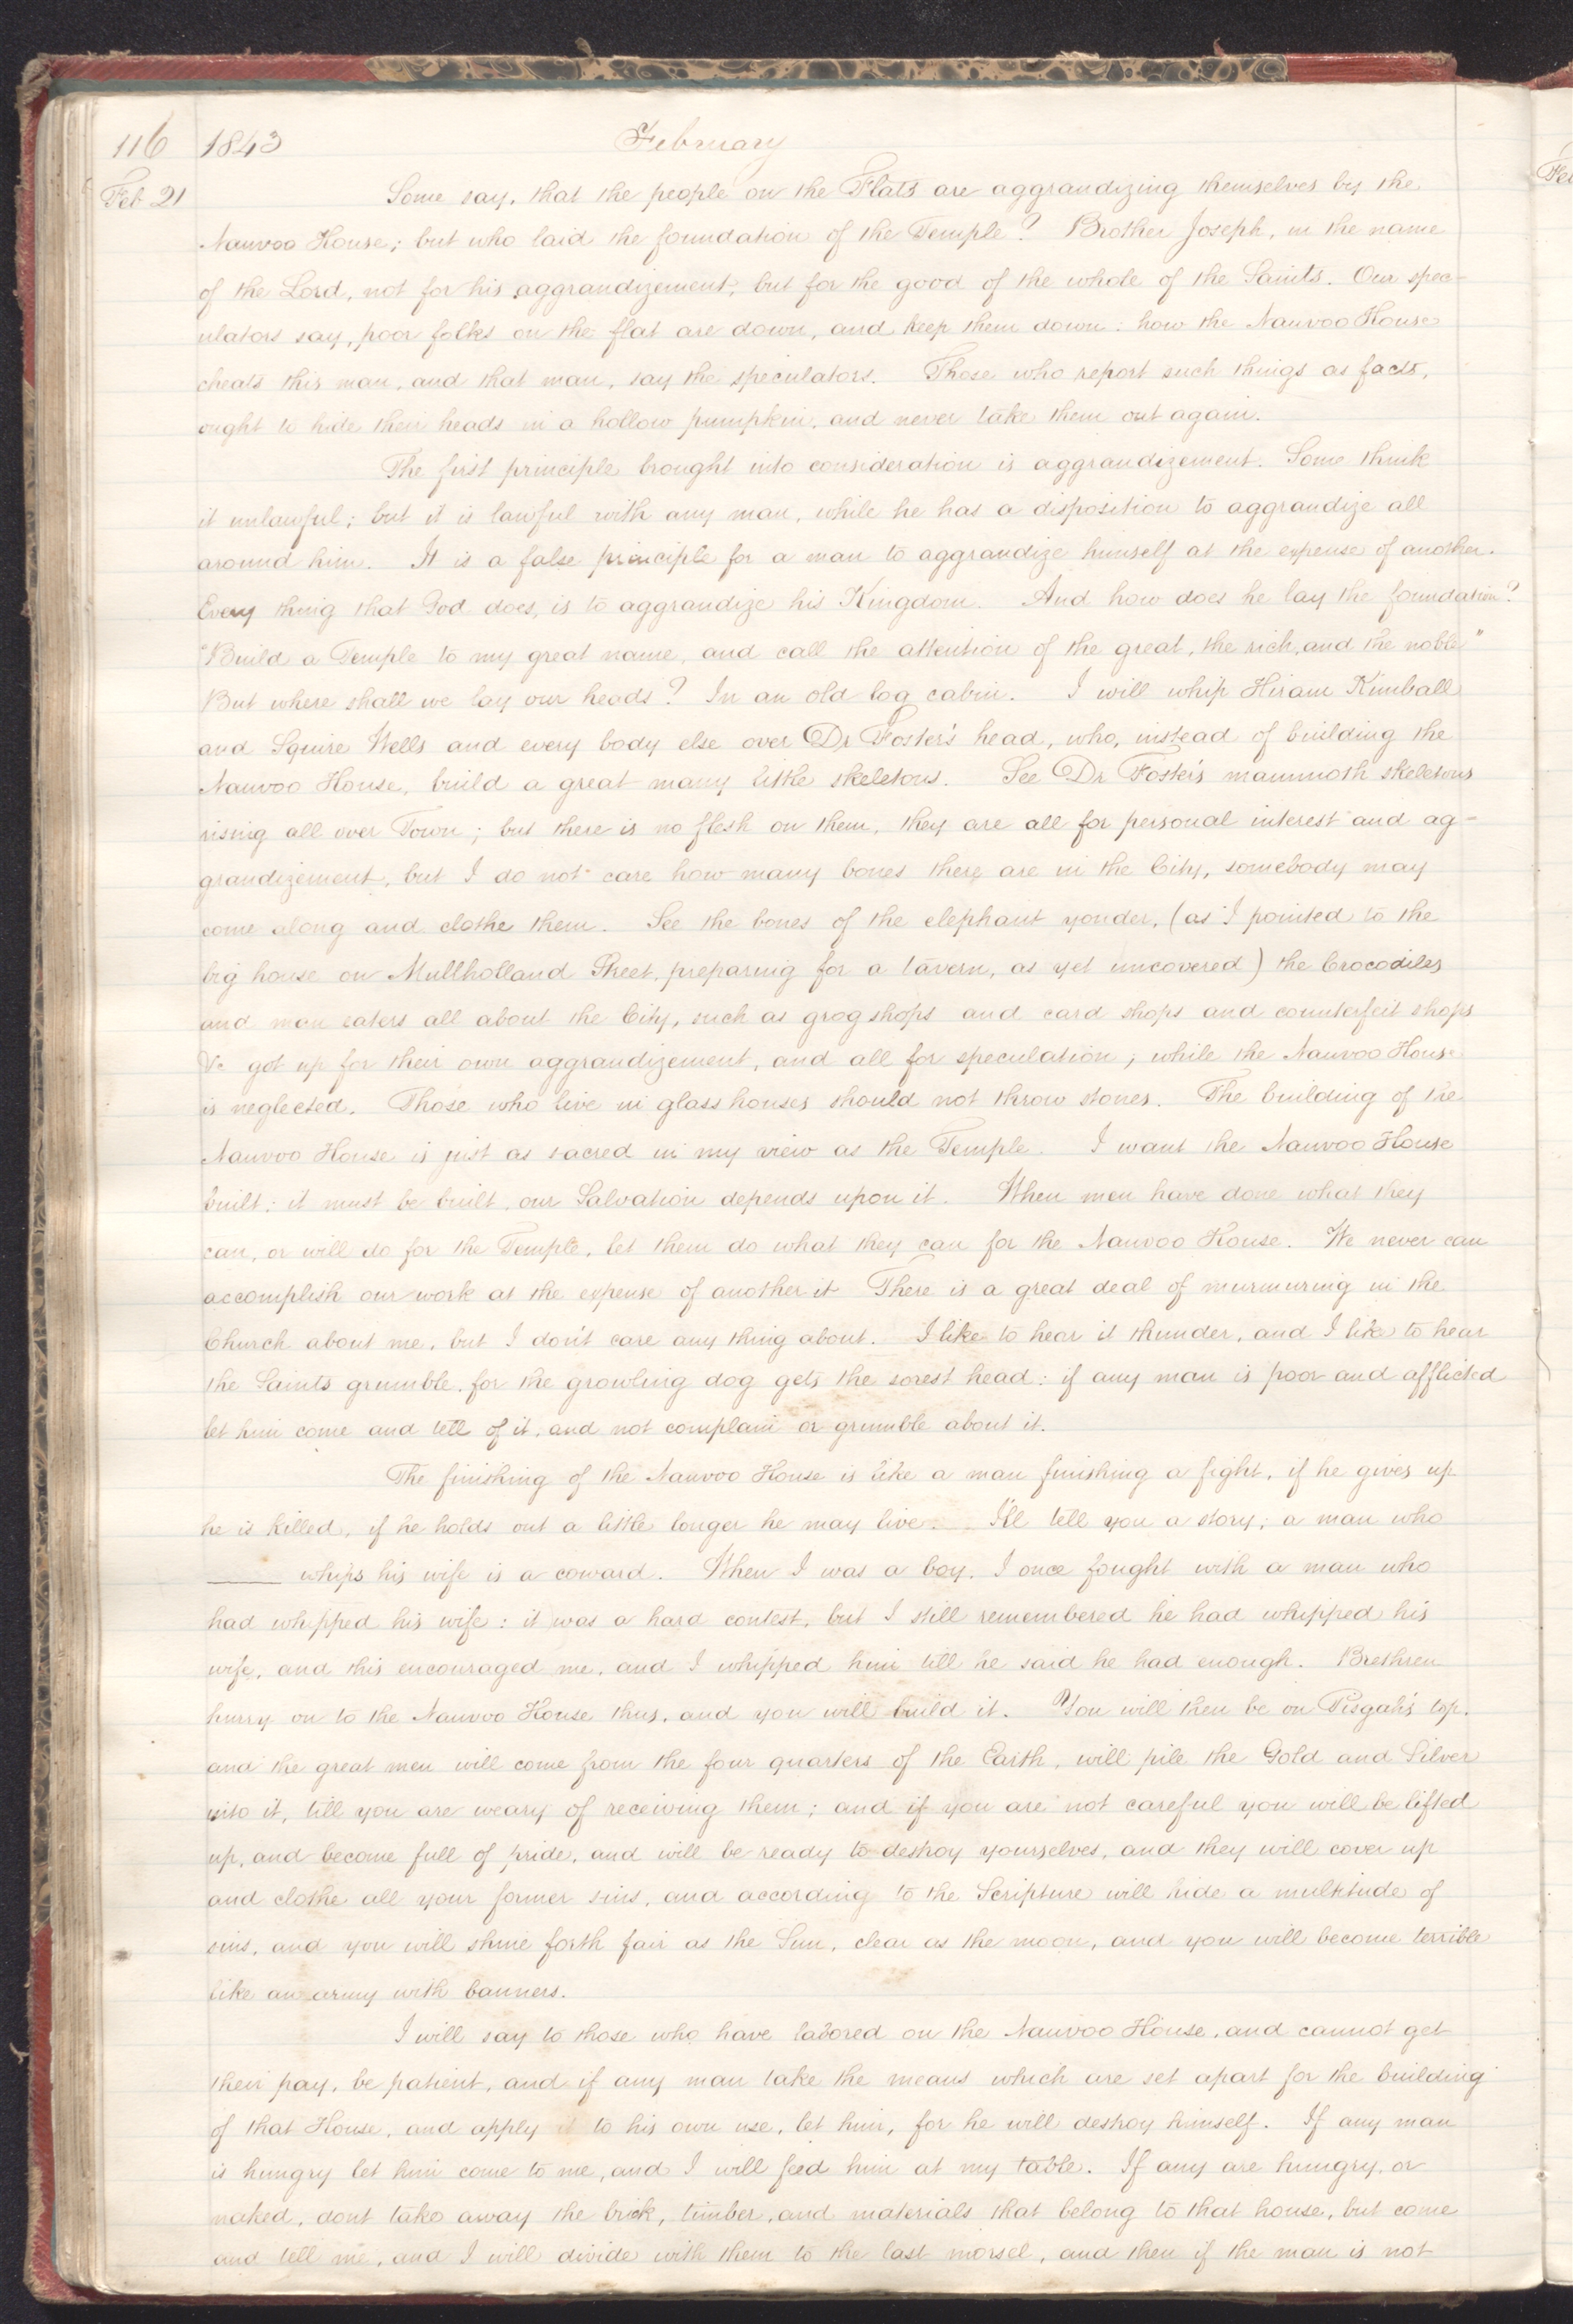 116 1843 February
Feb 21 Some say, that the people on the Flats are aggrandizing themselves by the
Nauvoo House; but who laid the foundation of the Temple? Brother Joseph, in the name
of the Lord, not for his aggrandizement, but for the good of the whole of the Saints. Our spec-
ulators say, poor folks on the flat are down, and keep them down: how the Nauvoo House
cheats this man, and that man, say the speculators. Those who report such things as facts,
ought to hide their heads in a hollow pumpkin, and never take them out again.
The first principle brought into consideration is aggrandizement. Some think
it unlawful; but it is lawful with any man, while he has a disposition to aggrandize all
around him. It is a false principle for a man to aggrandize himself at the expense of another.
Every thing that God does, is to aggrandize his Kingdom. And how does he lay the foundation?
"Build a Temple to my great name, and call the attention of the great, the rich, and the noble"
But where shall we lay our heads? In an old log cabin. I will whip Hiram Kimball
and Squire Wells and every body else over Dr Foster's head, who, instead of building the
Nauvoo House, build a great many little skeletons. See Dr Foster's mammoth skeletons
rising all over Town; but there is no flesh on them, they are all for personal interest and ag-
grandizement, but I do not care how many bones there are in the City, somebody may
come along and clothe them. See the bones of the elephant yonder, (as I pointed to the
big house on Mullholland Street, preparing for a tavern, as yet uncovered) the Crocodiles
and man eaters all about the City, such as grog shops and card shops and counterfeit shops
&c got up for their own aggrandizement, and all for speculation; while the Nauvoo House
is neglected. Those who live in glass houses should not throw stones. The building of the
Nauvoo House is just as sacred in my view as the Temple. I want the Nauvoo House
built; it must be built, our Salvation depends upon it. When men have done what they
can, or will do for the Temple, let them do what they can for the Nauvoo House. We never can
accomplish our work at the expense of another it There is a great deal of murmuring in the
Church about me, but I don't care any thing about. I like to hear it thunder, and I like to hear
the Saints grumble, for the growling dog gets the sorest head: if any man is poor and afflicted
let him come and tell of it, and not complain or grumble about it.
The finishing of the Nauvoo House is like a man finishing a fight, if he gives up
he is killed, if he holds out a little longer he may live. I'll tell you a story; a man who
whips his wife is a coward. When I was a boy, I once fought with a man who
had whipped his wife: it was a hard contest, but I still remembered he had whipped his
wife, and this encouraged me, and I whipped him till he said he had enough. Brethren
hurry on to the Nauvoo House thus, and you will build it. You will then be on Pisgah's top,
and the great men will come from the four quarters of the Earth, will pile the Gold and Silver
into it, till you are weary of receiving them; and if you are not careful you will be lifted
up, and become full of pride, and will be ready to destroy yourselves, and they will cover up
and clothe all your former sins, and according to the Scripture will hide a multitude of
sins, and you will shine forth fair as the Sun, clear as the moon, and you will become terrible
like an army with banners.
I will say to those who have labored on the Nauvoo House, and cannot get
their pay, be patient, and if any man take the means which are set apart for the building
of that House, and apply it to his own use, let him, for he will destroy himself. If any man
is hungry let him come to me, and I will feed him at my table. If any are hungry, or
naked, dont take away the brick, timber, and materials that belong to that house, but come
and tell me, and I will divide with them to the last morsel, and then if the man is not